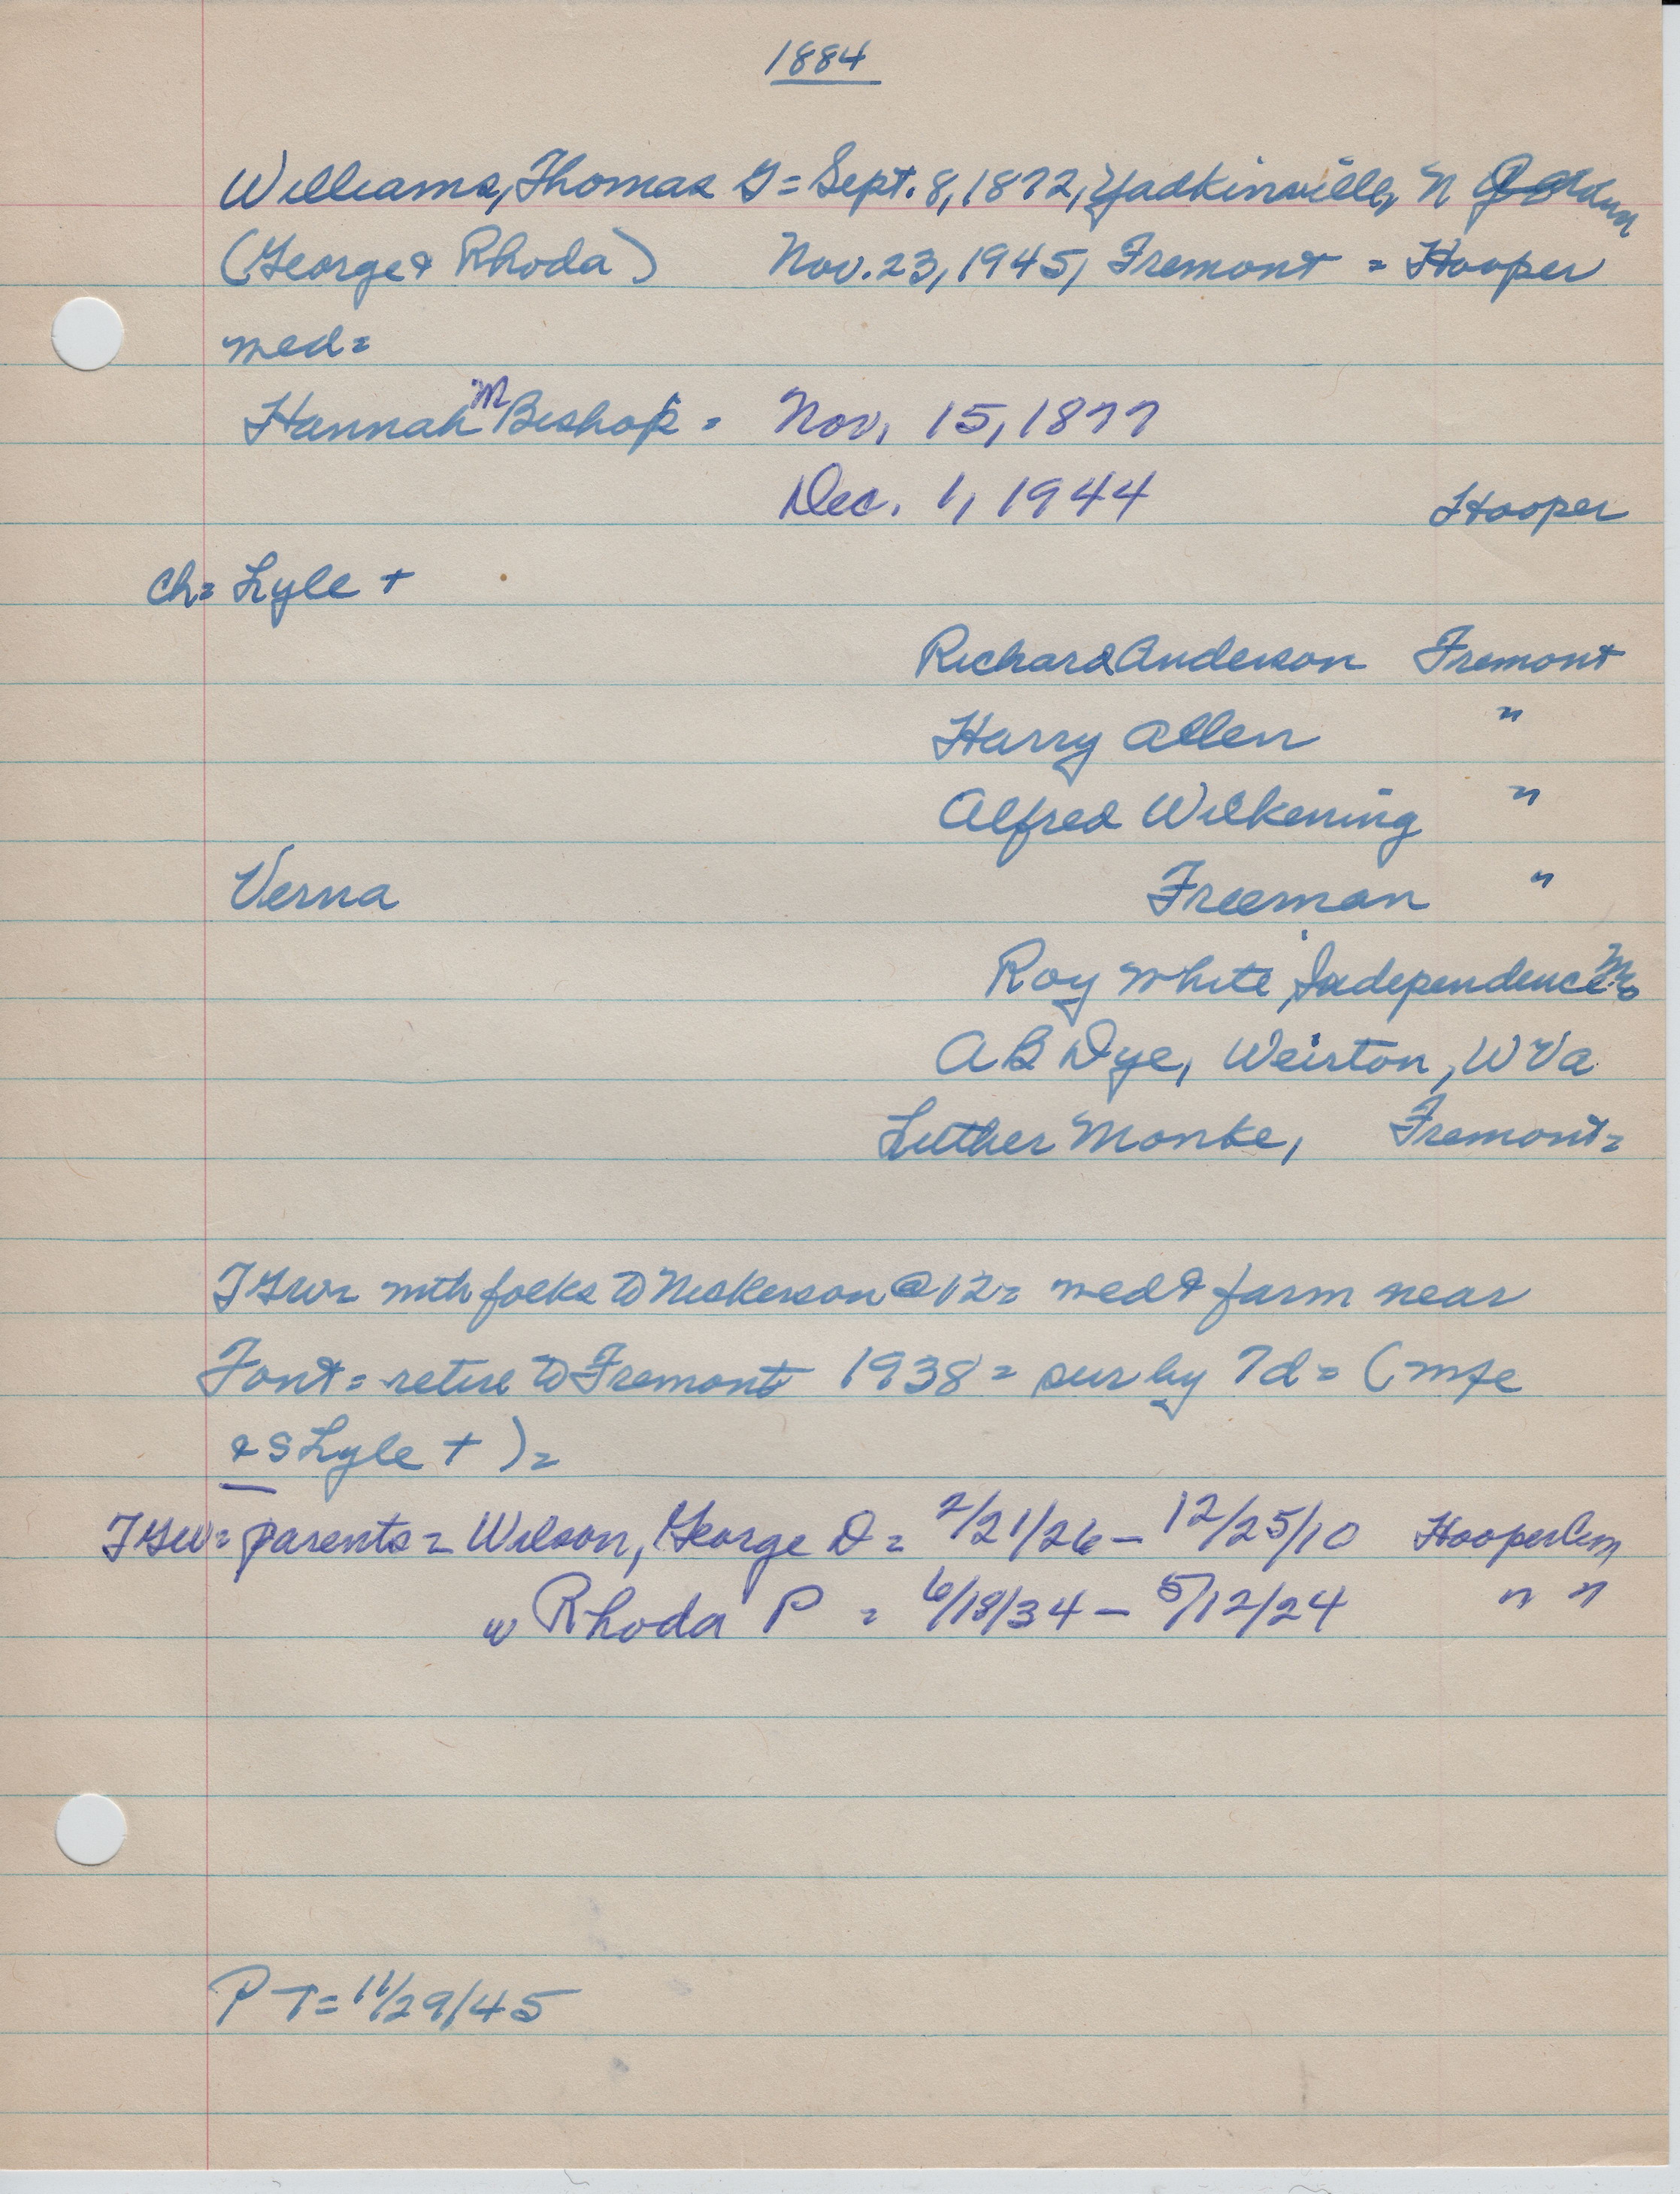 1884
Williams, Thomas G = Sept. 8, 1872, Yadkinville, N
(George & Rhoda) Nov. 23, 1945, Fremont = Hooper
med =
Hannah M Bishop = Nov. 15, 1877
Dec. 1, 1944 Hooper
Ch = Lyle +
Richard Anderson Fremont
Harry Allen "
Alfred Wilkening "
Verna Freeman "
Roy White, Independence Mo
A B Dye, Weirton, W Va
Luther Monke, Fremont =
TGW = with folks to Nickerson @ 12 = med & farm near
Font = retire to Fremont 1938 = sur by 7 d = ( wfe
& S Lyle + ) =
TGW = parents = Wilson, George D = 2/21/26 – 12/25/10 Hooper Cem
w Rhoda P = 6/18/34 – 5/12/24 " "
P T = 11/29/45